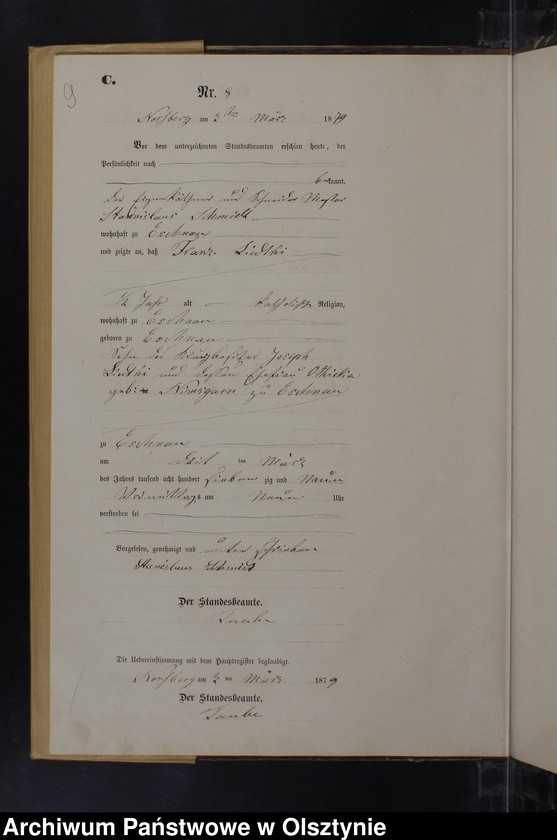 9
C.
Nr. 8
am 3ten März 1879
Vor dem unterzeichneten Standesbeamten erschien heute, der
Persönlichkeit nach
bekannt,
der Eigenkäthner und Schneider Meister
Stanislaus Schmidt
wohnhaft zu Eschnau
und zeigte an, daß Franz
½ Jahr alt katholischer Religion,
wohnhaft zu Eschnau
geboren zu Eschnau
Sohn des Joseph
und dessen Ehefrau
geb: zu Eschnau
zu Eschnau
am ten März
des Jahres tausend acht hundert sieben zig und Neun
Vormittags um Neun Uhr
verstorben sei
Vorgelesen, genehmigt und unterschrieben
Stanislaus Schmidt
Der Standesbeamte.
Taube
Die Uebereinstimmung mit dem Hauptregister beglaubigt.
am 3 ten März 1879
Der Standesbeamte.
Taube
Archiwum Państwowe w Olsztynie